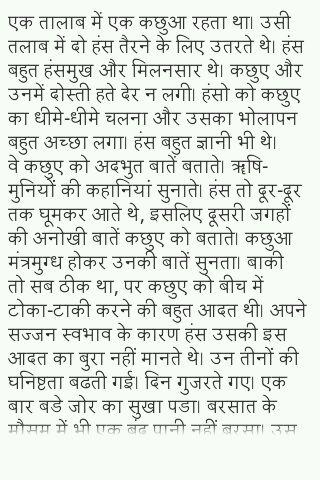 एक तालाब में एक कछुआ रहता था। उसी
तलाब में दो हंस तैरने के लिए उतरते थे। हंस
बहुत हंसमुख और मिलनसार थे। कछुए और
उनमें दोस्ती हते देर न लगी। हंसो को कछुए
का धीमे-धीमे चलना और उसका भोलापन
बहुत अच्छा लगा। हंस बहुत ज्ञानी भी थे।
वे कछुए को अदभुत बातें बताते। ॠषि-
मुनियों की कहानियां सुनाते। हंस तो दूर-दूर
तक घूमकर आते थे, इसलिए दूसरी जगहों
की अनोखी बातें कछुए को बताते। कछुआ
मंत्रमुग्ध होकर उनकी बातें सुनता। बाकी
तो सब ठीक था, पर कछुए को बीच में
टोका-टाकी करने की बहुत आदत थी। अपने
सज्जन स्वभाव के कारण हंस उसकी इस
आदत का बुरा नहीं मानते थे। उन तीनों की
घनिष्टता बढती गई। दिन गुजरते गए। एक
बार बडे जोर का सुखा पडा। बरसात के
मौसम में भी एक बूंद पानी नहीं बरसा। उस